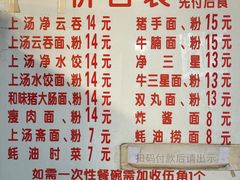 价目表 先付后食
上汤净云吞 14元
上汤云吞面、粉 14元
上汤净水饺 14元
上汤水饺面、粉 14元
和味猪大肠面、粉 14元
瘦肉面、粉 14元
上汤斋面、粉 7元
蚝油时菜 7元
猪手面、粉 15元
牛腩面、粉 15元
净三星 13元
牛三星面、粉 13元
双丸面、粉 13元
炸酱面 8元
蚝油捞面 8元
扫码付款后请出示
如需一次性餐碗需加收伍角1个